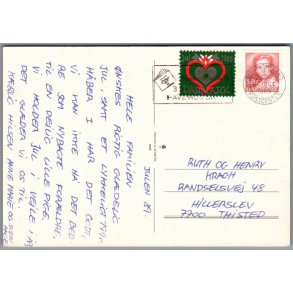 JULEN 89.
HELE FAMILIEN
ØNSKES RIGTIG GLÆDELIG
JUL, SAMT ET LYKKELIGT 1990
HÅBER I HAR DET GODT
VI KAN IKKE HA DET BED
RE SOM NYBAGTE FORÆLDRE
TIL EN DEJLIG LILLE PIGE.
VI HOLDER JUL I VEJLE I ÅR
DET GLÆDER VI OS TIL.
KÆRLIG HILSEN ANNE MARIE OG
RUTH OG HENRY
KRAGH
RANDSELSVEJ 48
HILLERSLEV
7700 THISTED